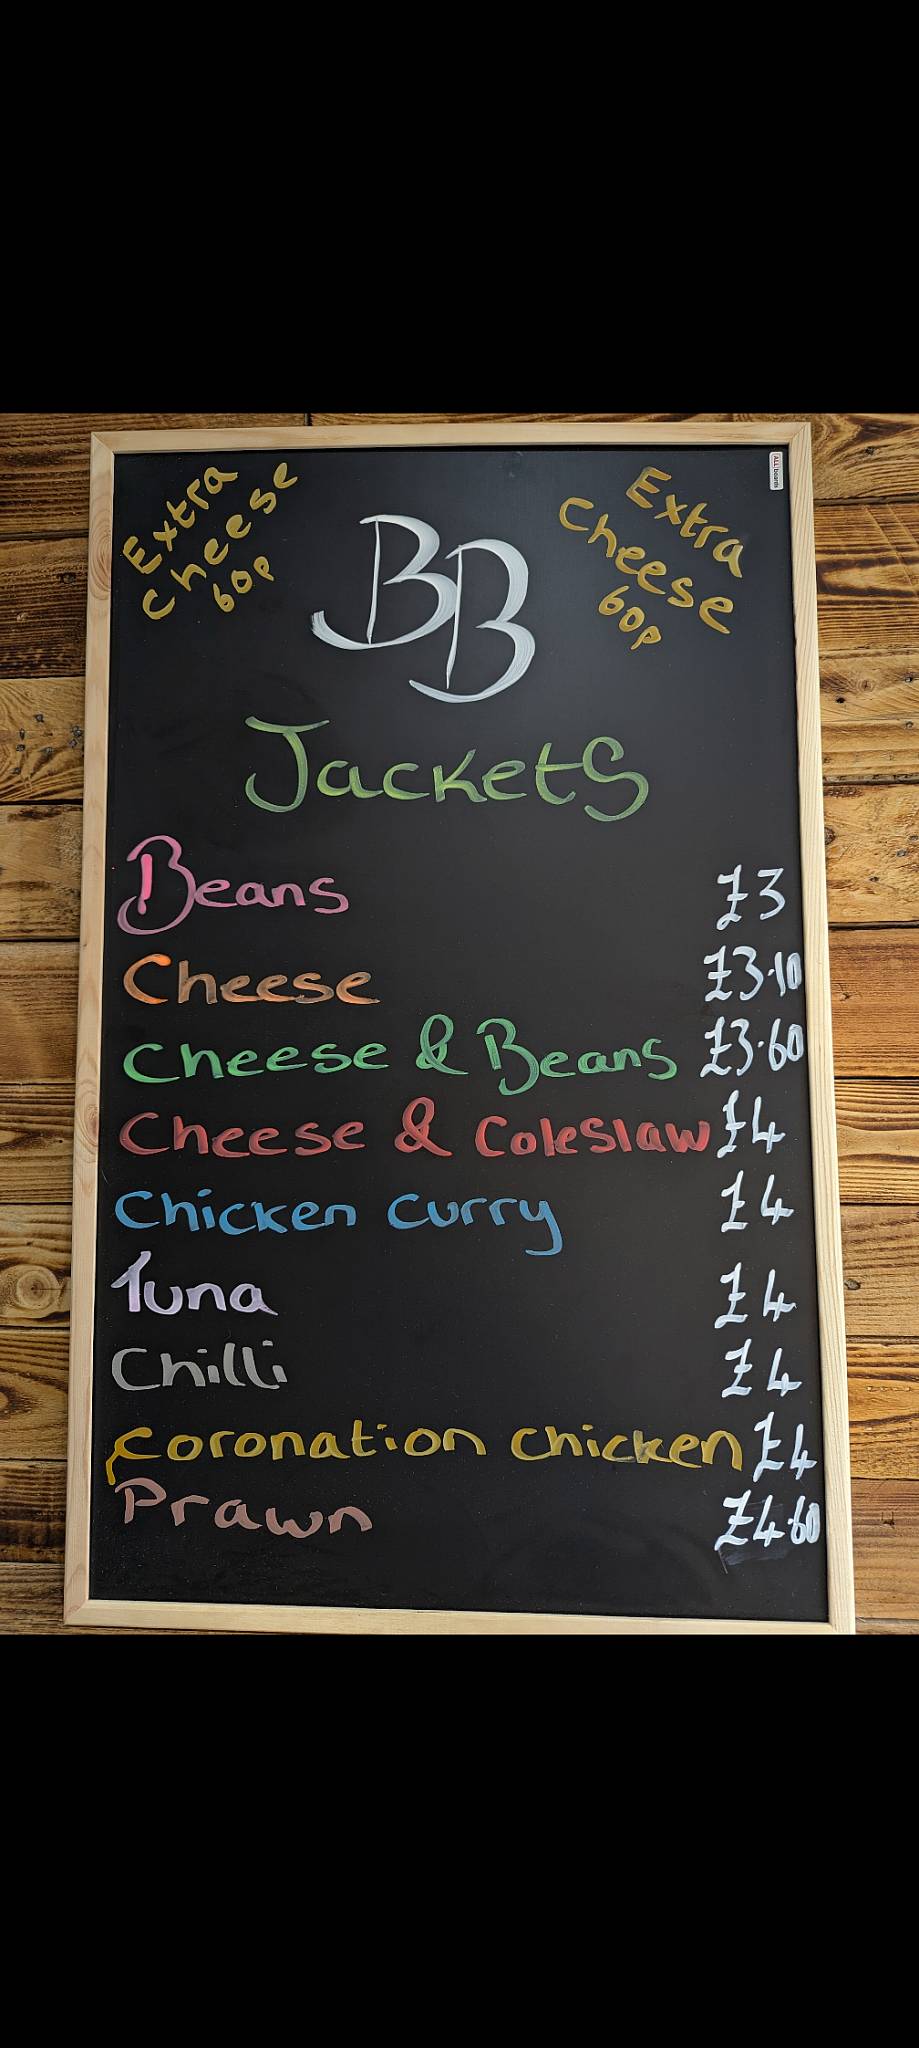 Extra
Cheese
60p
Extra
Cheese
60p
BB
ALLboards
Jackets
Beans £3
Cheese £3.10
Cheese & Beans £3.60
Cheese & Coleslaw £4
Chicken Curry £4
Tuna £4
Chilli £4
Coronation Chicken £4
Prawn £4.60